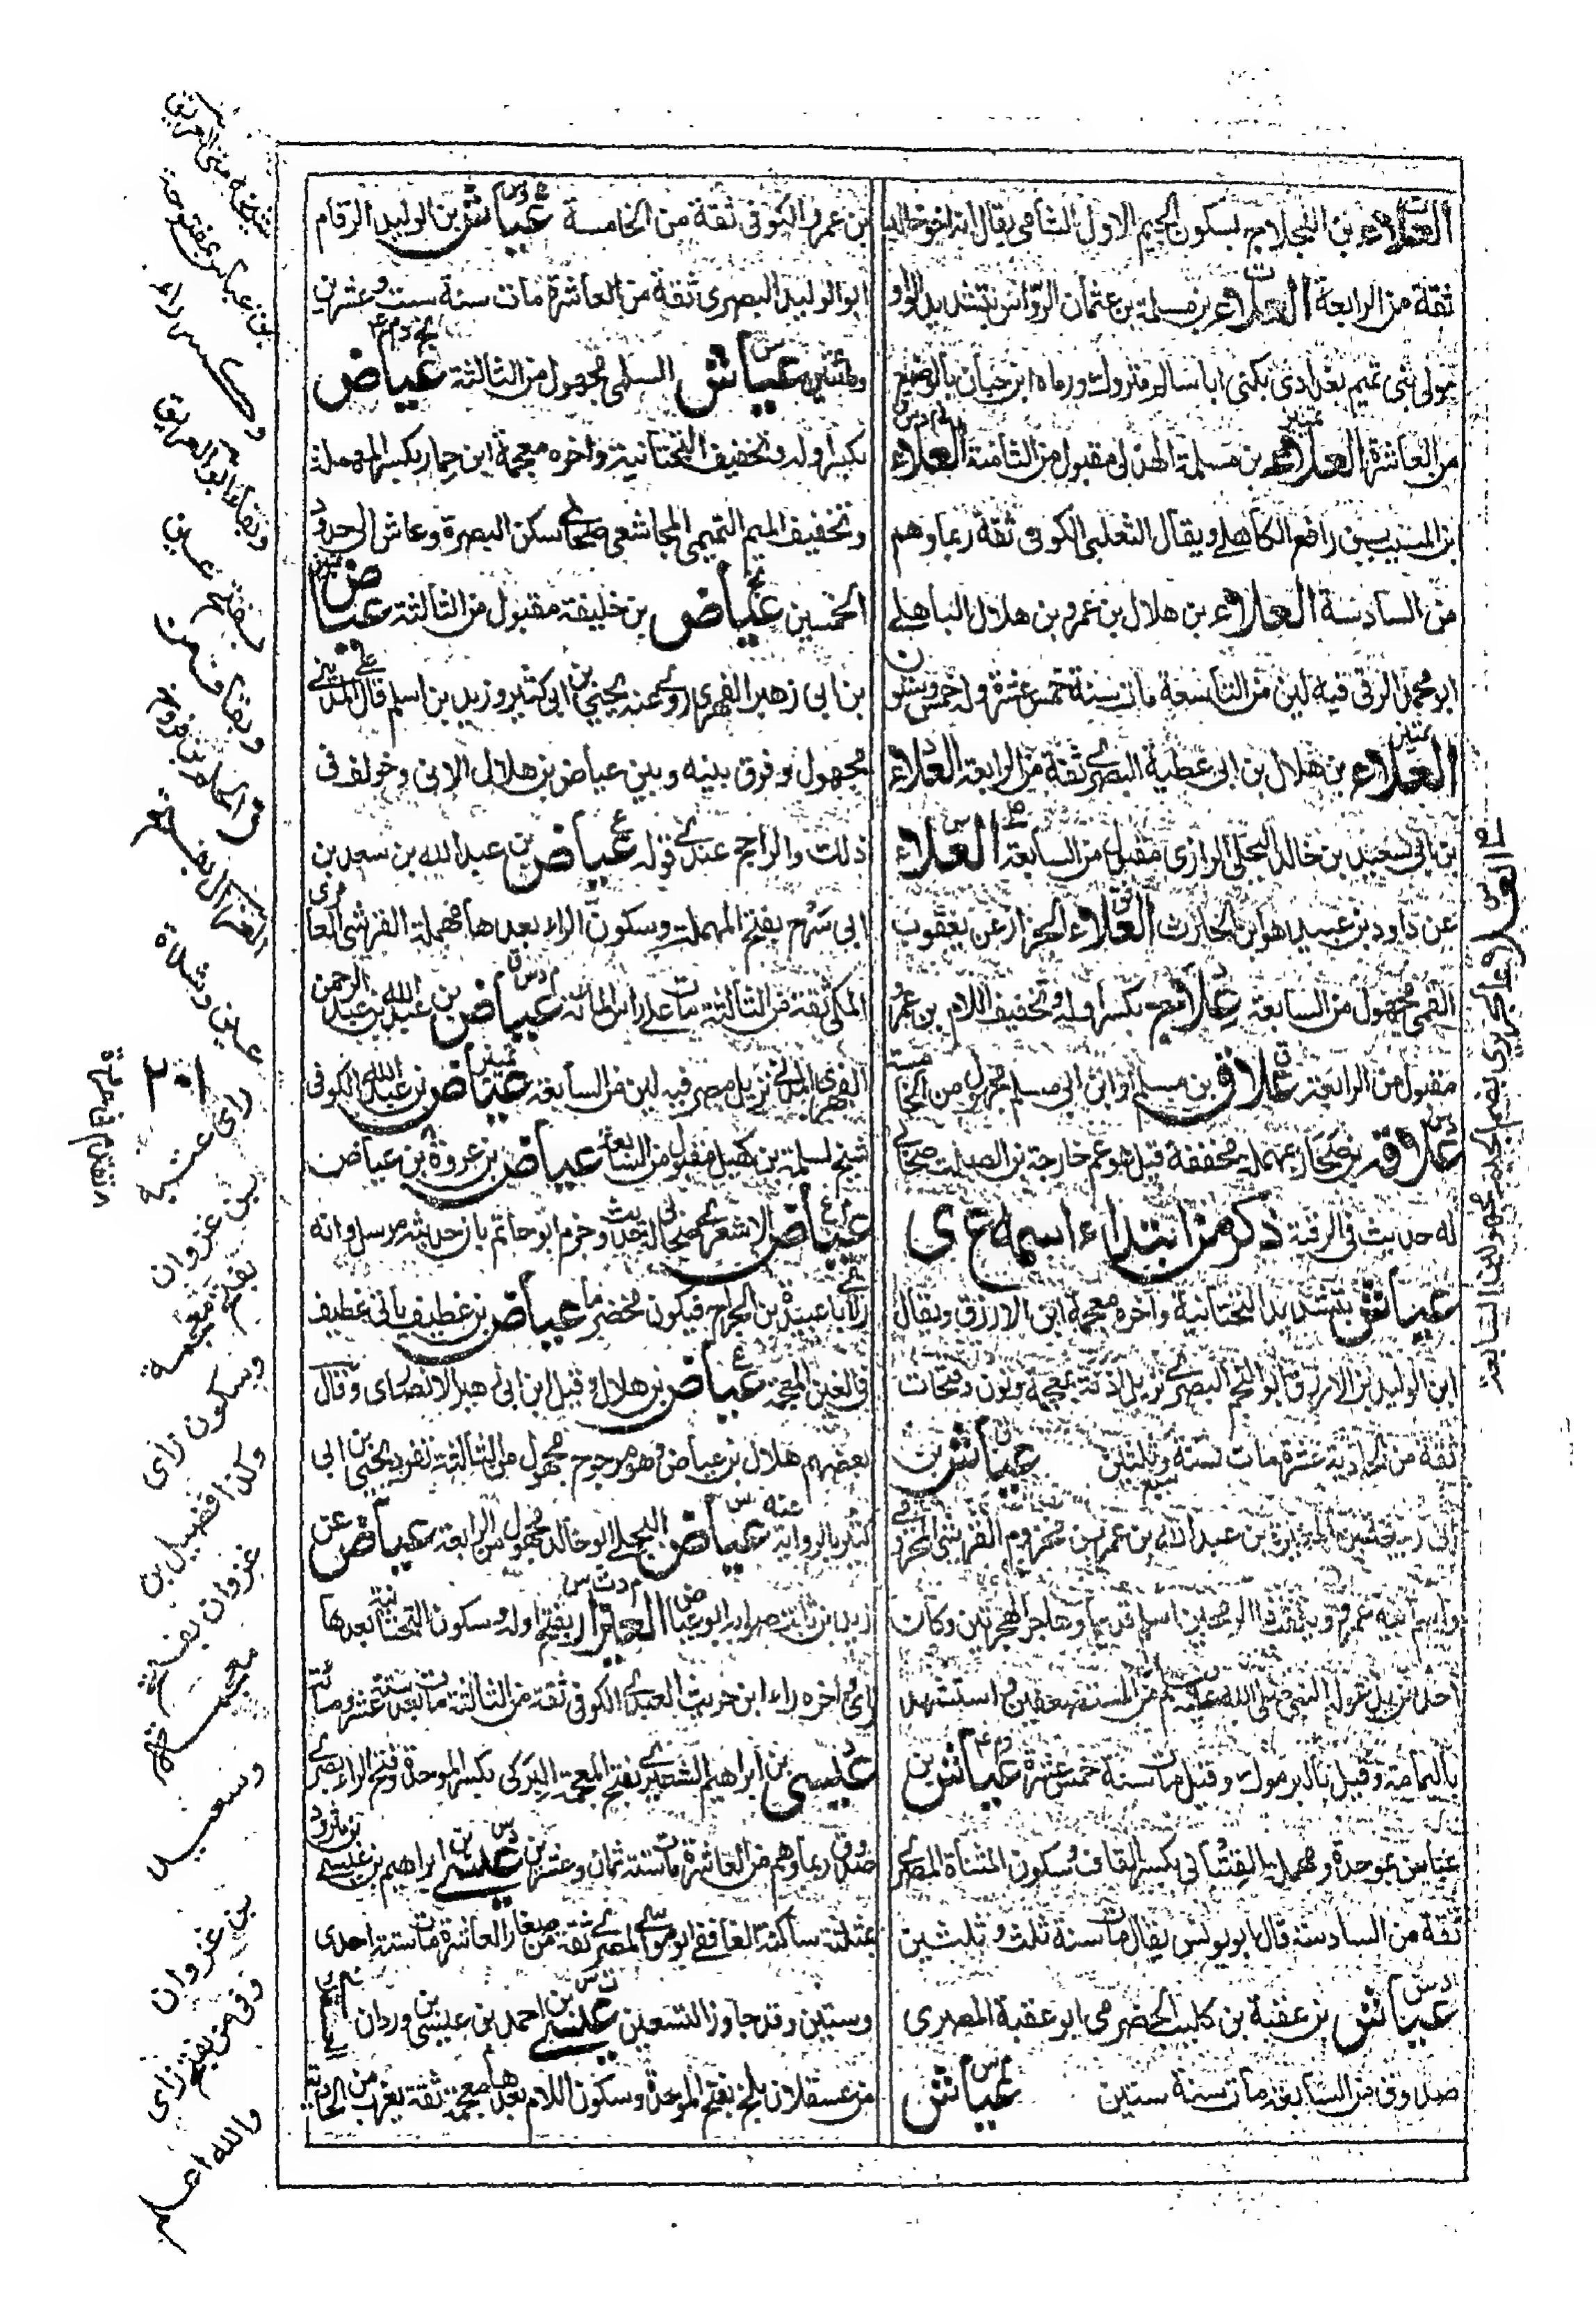 العلاء بن اللجلاج بسكون الجيم الاول الشامي يقال انه اخو خالد
ثقة من الرابعة العلاء بن مسلمة بن عثمان الرواس بتشديد الواو
مولى بني تميم بغدادي يكنى ابا سالم متروك ورماه ابن حبان بالوضع
من العاشرة العلاء بن مسلمة الهذلي مقبول من الثامنة العلاء
بن المسيب بن رافع الكاهلي ويقال الثعلبي الكوفي ثقة ربما وهم
من السادسة العلاء بن هلال بن عمرو بن هلال الباهلي
ابو محمد الرقي فيه لين من التاسعة مات سنة خمس عشرة وله خمس وستون
العلاء بن هلال بن ابي عطية البصري ثقة من الرابعة العلاء
بن ابي سعيد بن خالد البجلي الرازي مقبول من السابعة العلاء
عن داود بن عبيد هو ابن الحارث العلاء الخزاز عن يعقوب
القمي مجهول من السابعة علاج بكسر اوله وتخفيف اللام بن عمرو
مقبول من الرابعة علاق بن مسلم او ابن ابي مسلم مجهول من الخامسة
علاقة بن صحار بمهملة مخففة قيل هو عم خارجة بن الصلت صحابي
له حديث في الرقية ذكر من ابتداء اسمه ع ى
عياش بتشديد التحتانية واخره معجمة ابن الازرق ويقال
ابن الوليد بن الازرق ابو النجم البصري نزيل اذنة بمعجمة ونون وفتحات
ثقة من الحادية عشرة مات سنة سبع وثلثين عياش بن
ابي ربيعة بن المغيرة بن عبد الله بن عمر بن مخزوم القرشي المخزومي
واسم ابيه عمرو ويلقب ذا الرمحين اسلم قديما وهاجر الهجرتين وكان
احد من يدعو له النبي صلى الله عليه وسلم من المستضعفين واستشهد
باليمامة وقيل باليرموك وقيل مات سنة خمس عشرة عياش بن
عباس بموحدة ومهملة القتباني بكسر القاف وسكون المثناة المصري
ثقة من السادسة قال ابو يونس يقال مات سنة ثلث وثلثين
عياش بن عقبة بن كليب الحضرمي ابو عقبة المصري
صدوق من السابعة مات سنة ستين عياش
بن عمرو الكوفي ثقة من الخامسة عياش بن الوليد الرقام
ابو الوليد البصري ثقة من العاشرة مات سنة ست وعشرين
ومائتين عياش السلمي مجهول من الثالثة عياض
بكسر اوله وتخفيف التحتانية واخره معجمة ابن حمار بكسر المهملة
وتخفيف الميم التميمي المجاشعي صحابي سكن البصرة وعاش الى حدود
الخمسين عياض بن خليفة مقبول من الثالثة عياض
بن ابي زهير الفهري روى عنه يحيى بن ابي كثير وزيد بن اسلم قال علي بن المديني
مجهول وفرق بينه وبين عياض بن هلال الاتي وخولف في
ذلك والراجح عندي قوله عياض بن عبد الله بن سعد بن
ابي سرح بفتح المهملة وسكون الراء بعدها مهملة القرشي العامري
المكي ثقة من الثالثة مات على راس المائة عياض بن عبد الله بن عبد الرحمن
الفهري المدني نزيل مصر فيه لين من السابعة عياض بن عبد الله الكوفي
شيخ لسلمة بن كهيل مقبول من السابعة عياض بن عروة بن عياض
عياض الاشعري صحابي له حديث وجزم ابو حاتم بان حديثه مرسل وانه
راى ابا عبيدة بن الجراح فيكون مخضرما عياض بن غطيف ياتي غطيف
في الغين المعجمة عياض بن هلال وقيل ابن ابي زهير الانصاري وقال
بعضهم هلال بن عياض وهو مرجوح مجهول من الثالثة تفرد يحيى بن ابي
كثير بالرواية عنه عياض البجلي ابو خالد مجهول من الرابعة عياض عن
زيد بن ثابت صوابه ابو عياض العيزار بفتح اوله وسكون التحتانية بعدها
زاي واخره راء ابن حريث العبدي الكوفي ثقة من الثالثة مات بعد سنة عشر ومائة
عيسى بن ابراهيم الشعيري بفتح المعجمة البركي بكسر الموحدة وفتح الراء بصري
صدوق ربما وهم من العاشرة مات سنة ثمان وعشرين عيسى بن ابراهيم بن عيسى بن مثرود
بمثلثة ساكنة الغافقي ابو موسى المصري ثقة من صغار العاشرة مات سنة احدى
وستين وقد جاوز التسعين عيسى بن احمد بن عيسى بن وردان
من عسقلان بلخ بفتح الموحدة وسكون اللام بعدها معجمة ثقة يغرب من الحادية
بن غزوان
بفتح معجمة
وسكون زاى
وكذا فضيل بن
غزوان بفتح
معجمة
وسعيد
بن غزوان
والله اعلم